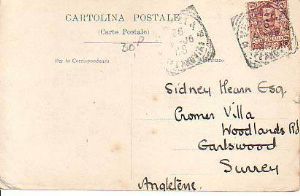 CARTOLINA POSTALE
(Carte Postale)
30P
Per la Corrispondenza
Sidney Hearn Esq.
Cromer Villa
Woodlands Rd
Earlswood
Surrey
Angleterre.